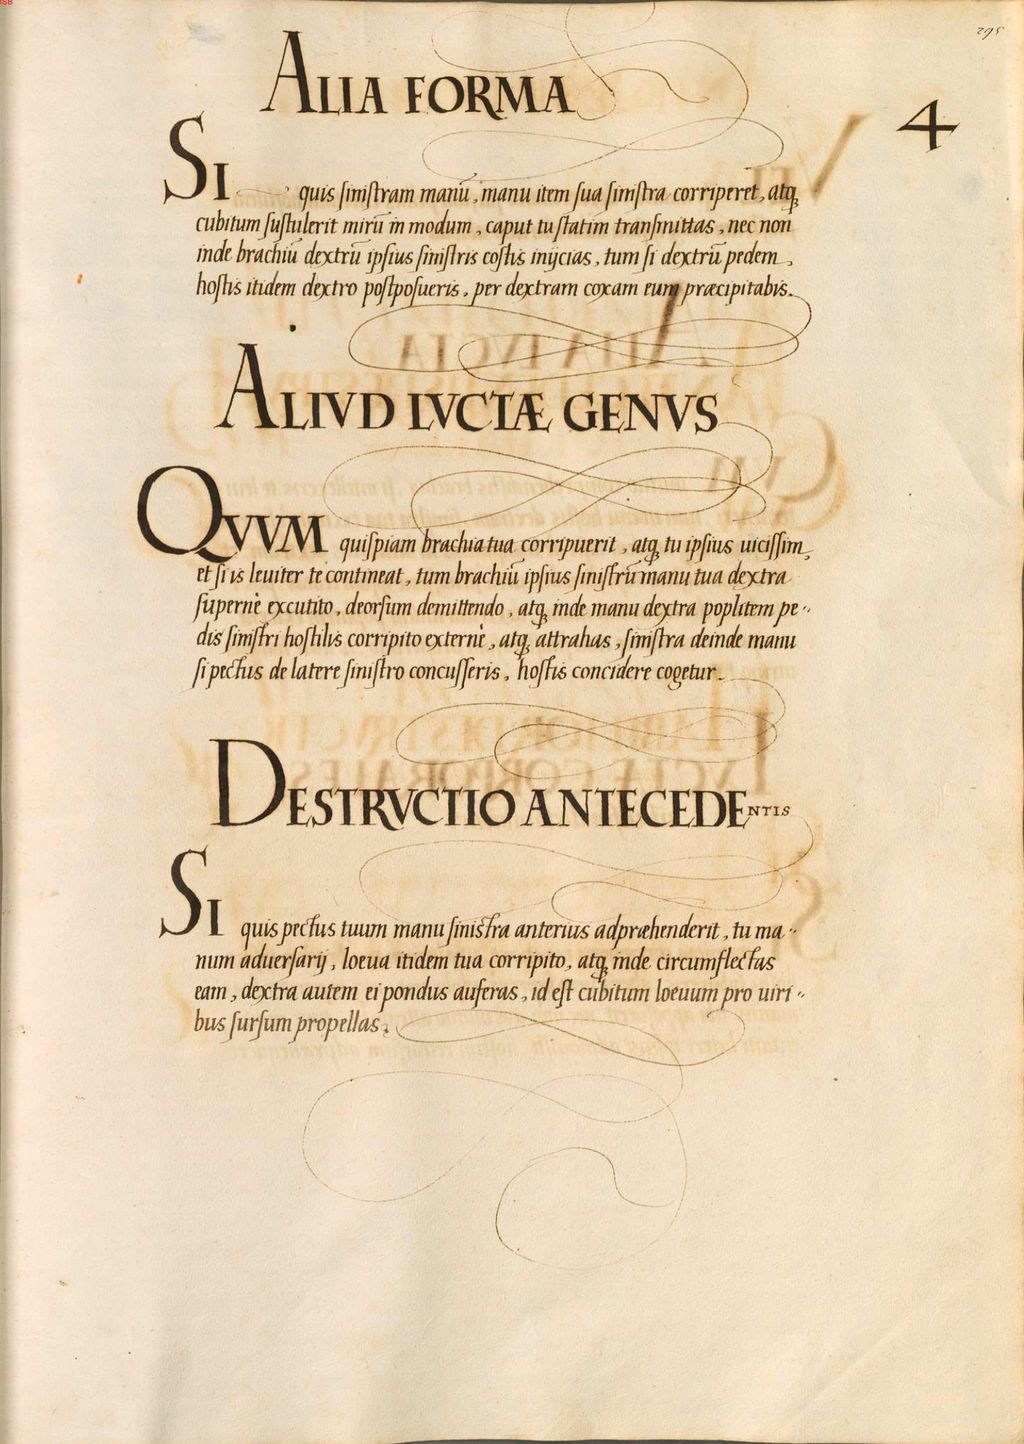 295
ALIA FORMA
4
SI quis sinistram manũ, manu item sua sinistra corriperet, atq;
cubitum sustulerit mirũ in modum, caput tu statim transmittas, nec non
inde brachiũ dextrũ ipsius sinistris costis inijcias, tum si dextrũ pedem,
hostis itidem dextro postposueris, per dextram coxam eum præcipitabis.
ALIVD LVCTÆ GENVS
QVVM quispiam brachia tua corripuerit, atq; tu ipsius uicissim,
et si is leuiter te contineat, tum brachiũ ipsius sinistrũ manu tua dextra
supernè excutito, deorsum demittendo, atq; inde manu dextra poplitem pe-
dis sinistri hostilis corripito externè, atq; attrahas, sinistra deinde manu
si pectus de latere sinistro concusseris, hostis concidere cogetur.
DESTRVCTIO ANTECEDENTIS
SI quis pectus tuum manu sinistra anterius adpræhenderit, tu ma-
num aduersarij, loeua itidem tua corripito, atq; inde circumflectas
eam, dextra autem ei pondus auferas, id est cubitum loeuum pro uiri-
bus sursum propellas.